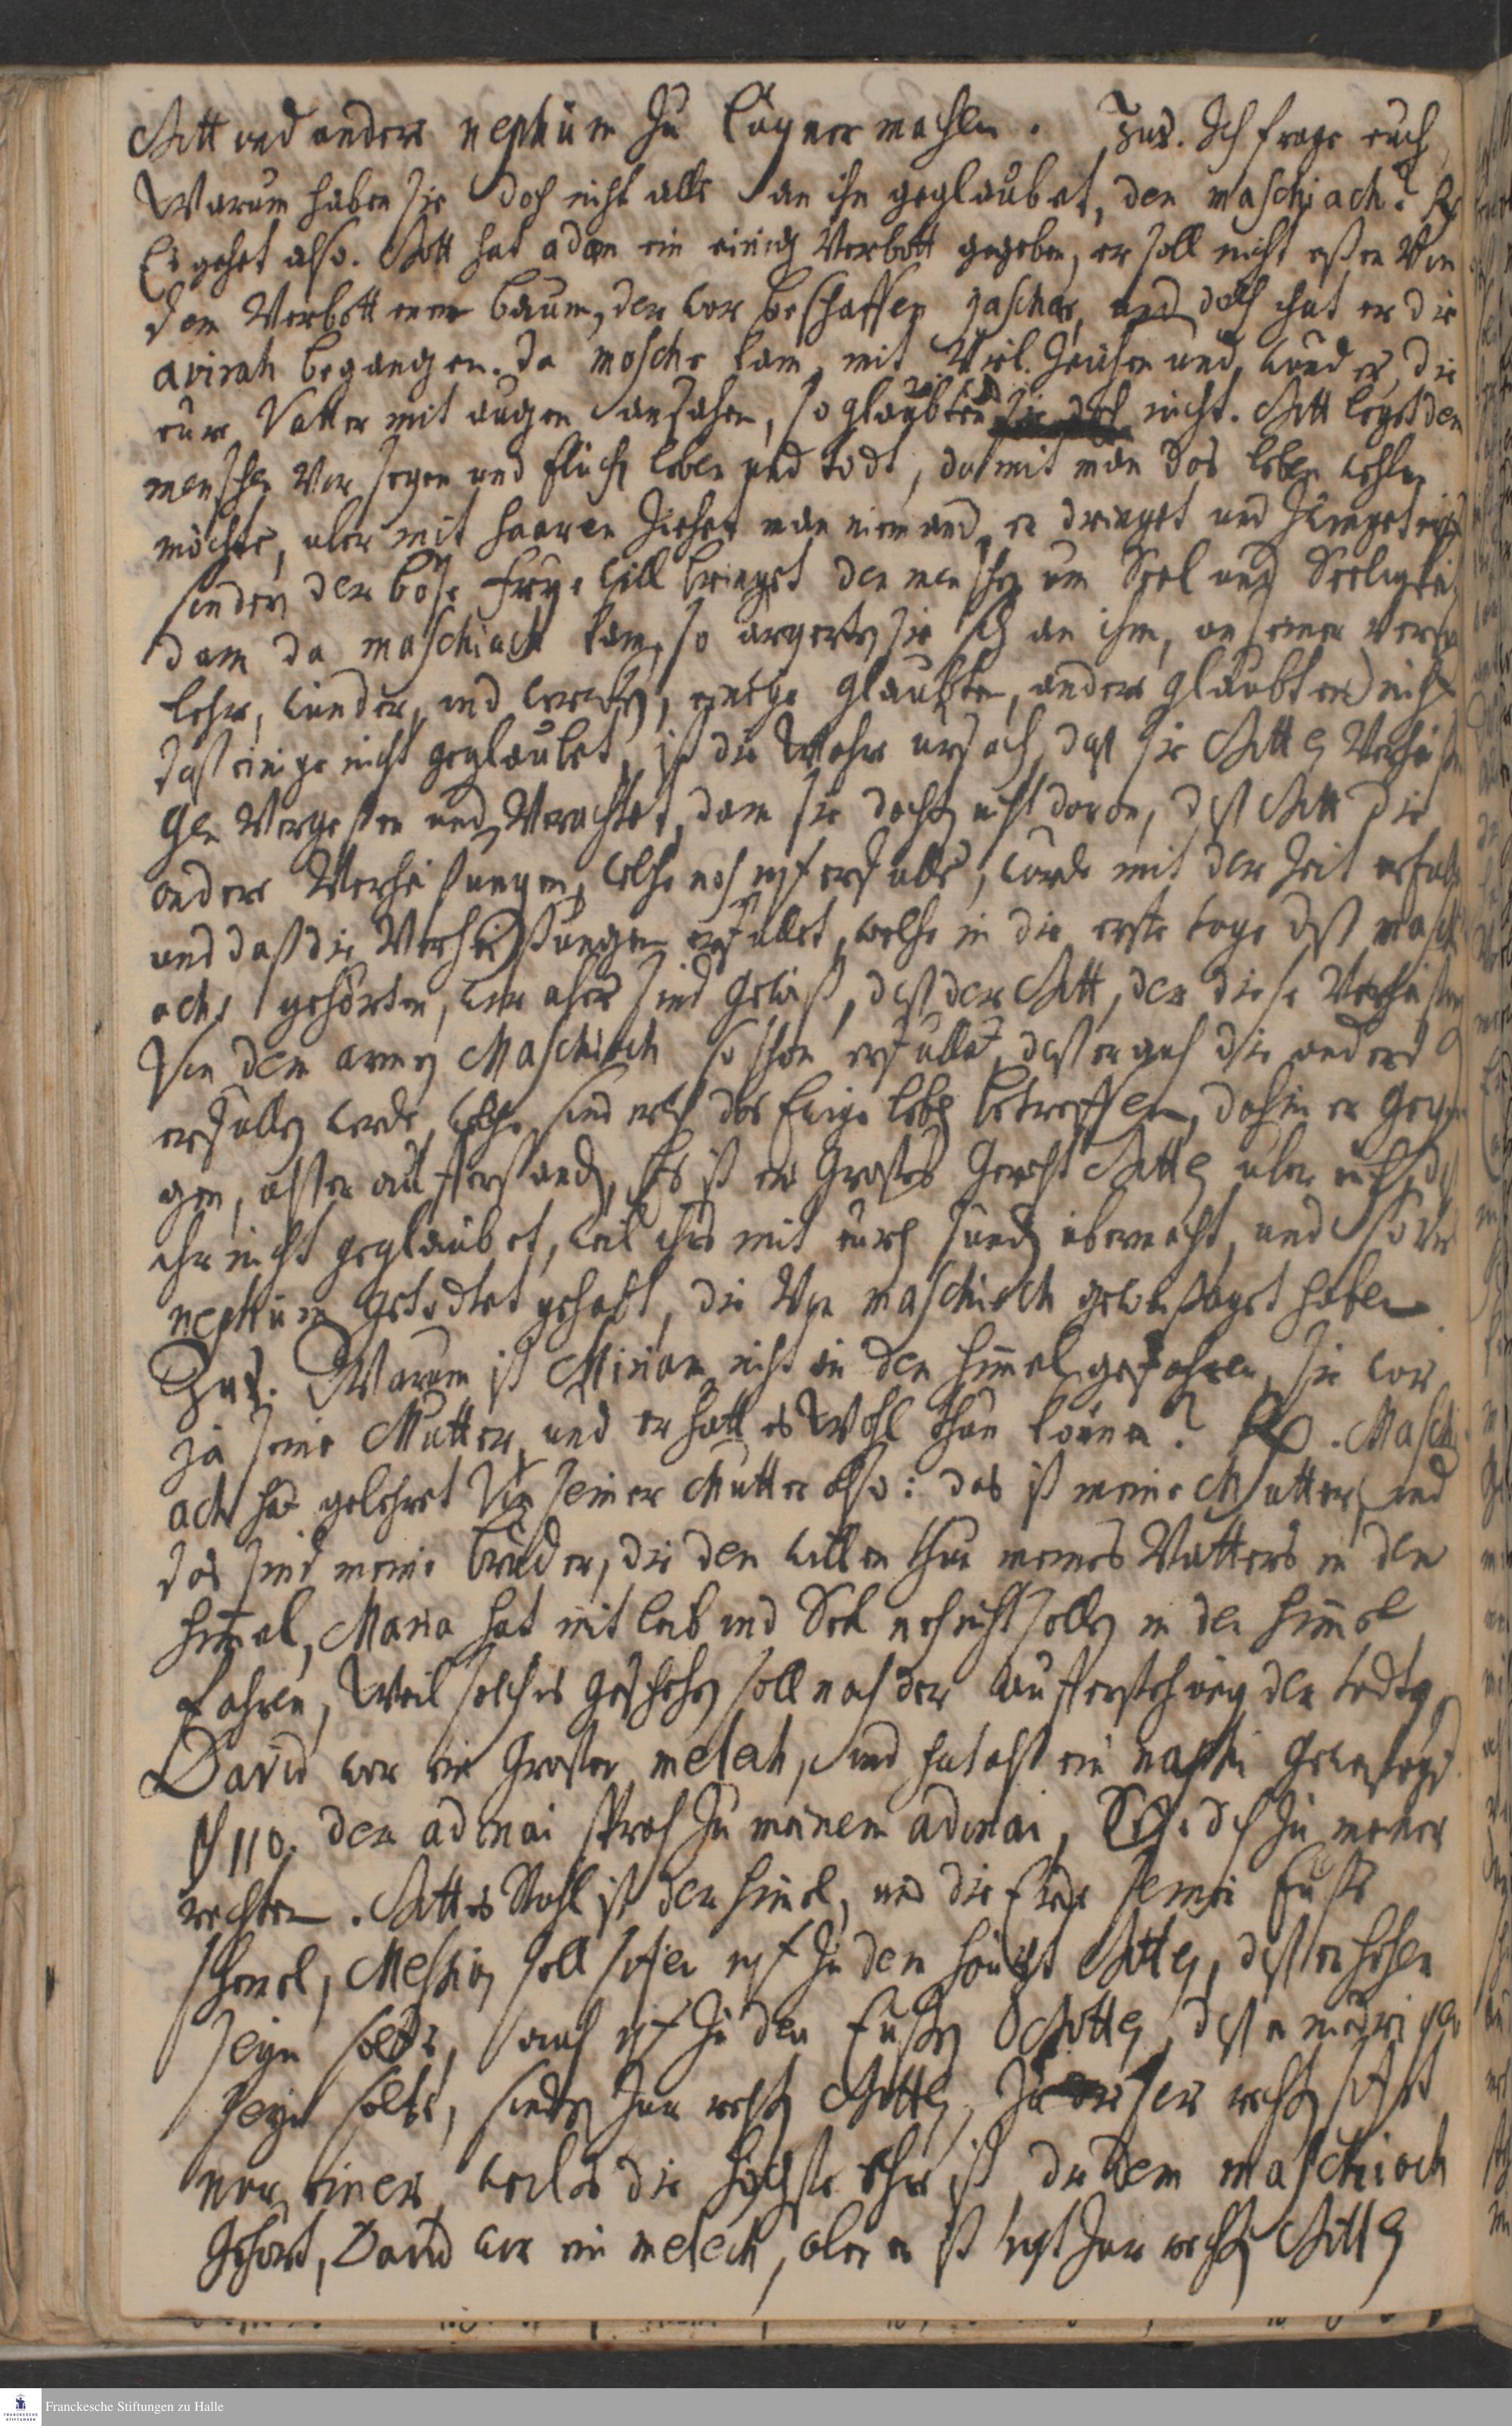 Gott und andere nephiim zu Lügner machen. Jud. Ich frage euch
Warum haben sie doch nicht alle an ihn geglaubet, den maschiach? R.
Es gehet also. Gott hat adam ein einig Verbott gegeben, er soll nicht eßen Von
dem Verbottenen baum, der war beschaffen jaschar, und doch hat er die
avirah begangen. Da mosche kam, mit Viel Zeichen und wunder, die
eure Vätter mit augen ansahen, so glaubten nicht. Gott leget den
menschen Vor segen und fluch leben und todt, damit man das leben wehlen
möchte, aber mit haaren ziehet man niemand, er dringet und zwinget nicht
sondern der böse freye will bringet den menschen um Seel und Seeligkeit
dann da maschiach kam, so ärgerten sie sich an ihm, an seiner Person
lehre, wunder, und wercken, einige glaubten, andere glaubten nicht
daß einige nicht geglaubet, ist die Wahre ursach, daß sie Gottes Verheißun
gen Vergeßen und Verachtet, dann sie dachten nicht daran, daß Gott die
andere Verheißungen, welche noch nicht erfüllt, würde mit der Zeit erfüllen
und daß die Verheißungen erfüllet, welche in die erste tage deß maschi
achs gehörten, wir aber sind gewiß, daß der Gott, der diese Verheißungen
Von dem armen Maschiach so schon erfüllet, daß er auch die andere
erfüllen werde, welche das Ewige leben betreffen, dahin er gegan
gen, alß er aufferstanden, Es ist ein Großes Gericht Gottes über euch, daß
ihr nicht geglaubet, weil ihrs mit euren sünden übermacht, und so viele
nephiim getödtet gehabt, die Von maschiach geweißaget haben
Jud. Warum ist Miriam nicht in den himmel gefahren, sie war
ja seine Mutter, und er hätt es Wohl thun können? R. Maschi
ach hat gelehret Von seiner Mutter also: das ist meine Mutter, und
das sind meine brüder, die den willen thun meines Vatters in den
himmel, Maria hat mit leib und Seel noch nicht sollen in den himmel
fahren, Weil solches geschehen soll nach der aufferstehung der todten,
David war ein großer melech, und hat alß ein naphi geweißagt
ψ 110. der adonai sprach zu meinem adonai, Setze dich zu meiner
rechten. Gottes Stuhl ist der himel, und die Erde seiner Füße
schemel, Meßias soll sitzen nicht zu dem häupt Gottes, daß er höher
seyn solte, auch nicht zu den Füßen Gottes, daß er niedriger
seyn solte, sondern zur rechten Gottes, zu rechten sitzet
nur einer, weil es die höchste ehre ist, die dem maschiach
gehört, David war ein melech, aber er ist nicht zur rechten Gottes
Franckesche Stiftungen zu Halle